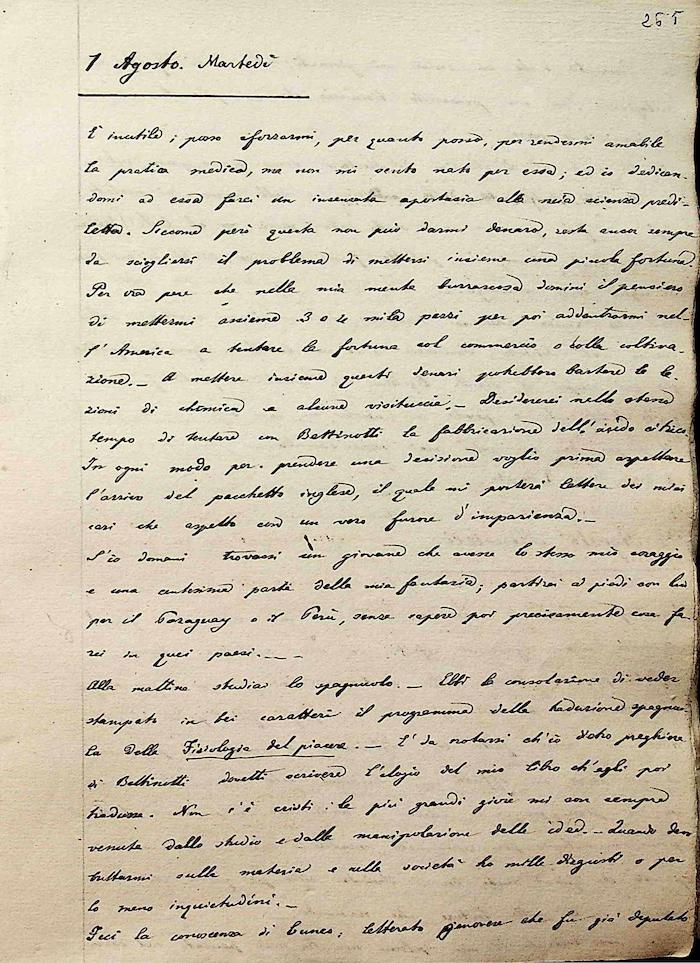 255
1 Agosto. Martedì
È inutile; posso sforzarmi, per quanto posso, per rendermi amabile
la pratica medica, ma non mi sento nato per essa; ed io dedican-
domi ad essa farei un insensata apostasia alla mia scienza predi-
letta. Siccome però questa non può darmi denaro, resta ancor sempre
da sciogliersi il problema di mettersi insieme una piccola fortuna.
Per ora pare che nella mia mente burrascosa domini il pensiero
di mettermi assieme 3 o 4 mila pezzi per poi addentrarmi nel-
l'America a tentare la fortuna col commercio o colla coltiva-
zione._ A mettere insieme questi denari potrebbero bastare le le-
zioni di chimica e alcune visituccie._ Desidererei nello stesso
tempo di tentare con Bettinotti la fabbricazione dell'acido citrico.
In ogni modo per prendere una decisione voglio prima aspettare
l'arrivo del pacchetto inglese, il quale mi porterà lettere dei miei
cari che aspetto con un vero furore d'impazienza._
S'io domani trovassi un giovane che avesse lo stesso mio coraggio
e una centesima parte della mia fantasia; partirei ai piedi con lui
per il Paraguay o il Perù, senza sapere poi precisamente cosa fa-
rei in quei paesi._ _
Alla mattina studiai lo spagnuolo._ Ebbi la consolazione di veder
stampato in bei caratteri il programma della traduzione spagnuo-
la della Fisiologia del piacere._ È da notarsi ch'io dietro preghiera
di Bettinotti dovetti scrivere l'elogio del mio libro ch'egli poi
tradusse. Non c'è cristi: le più grandi gioie mi son sempre
venute dallo studio e dalla manipolazione delle idee._ Quando devo
buttarmi sulla materia e nella società ho mille disgusti o per
lo meno inquietudini._
Feci la conoscenza di Cuneo; letterato genovese che fu già deputato